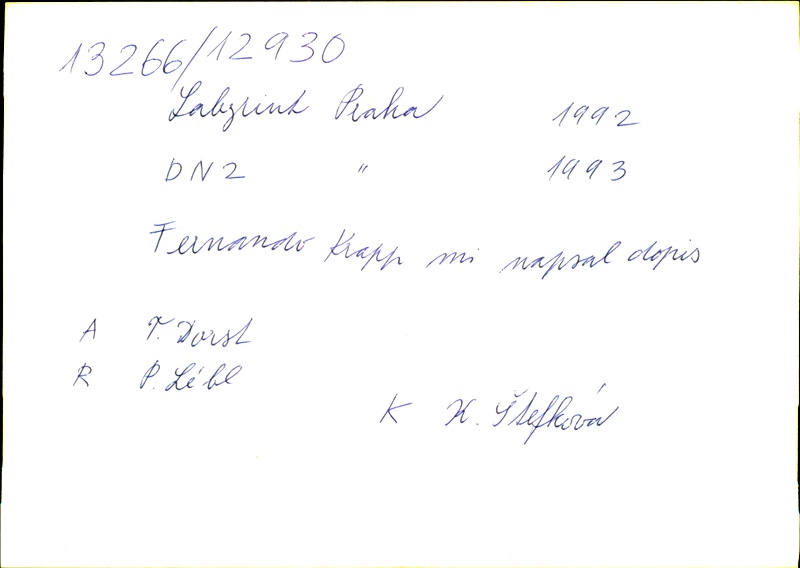 13266/12930
Labyrint Praha 1992
DN2 " 1993
Fernando Krapp mi napsal dopis
A T. Dorst
R P. Lébl
K K. Štefková